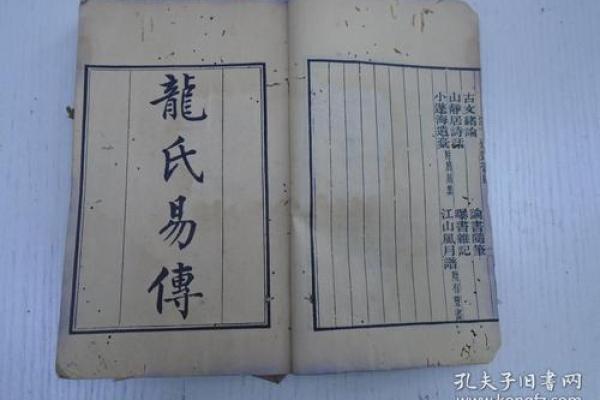 古文緒論
論書隨筆
山靜居詩話
曝書雜記
小蓬海遺稾
江山風月譜
龍氏易傳
孔夫子旧书网